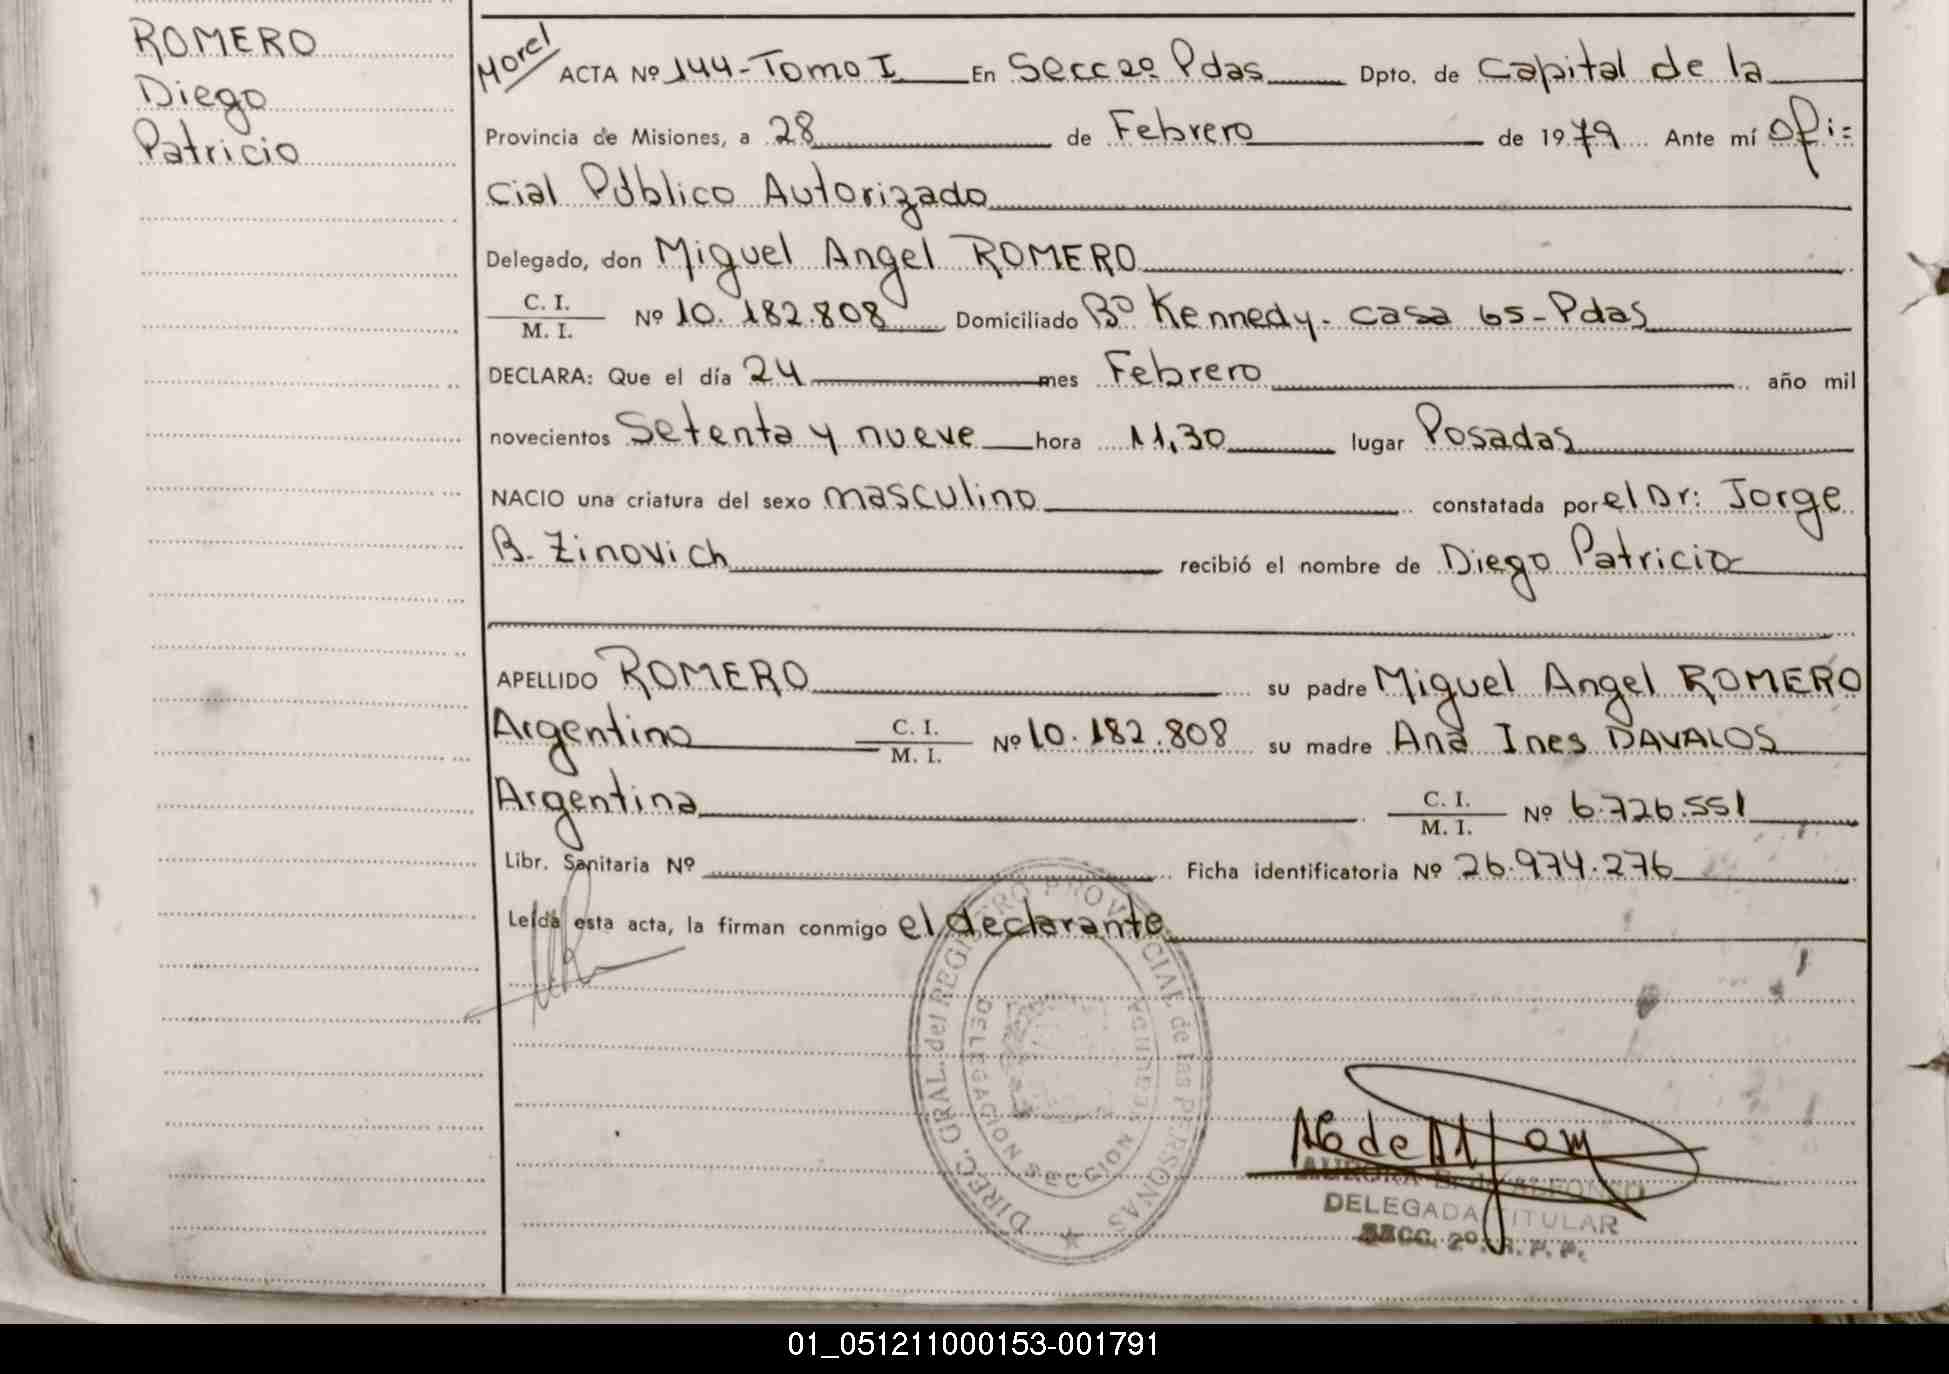 ROMERO
Diego
Patricio
Morel
ACTA Nº 144-Tomo I En Secc 2º Pdas Dpto. de Capital de la
Provincia de Misiones, a 28 de Febrero de 1979 Ante mí Ofi=
cial Público Autorizado
Delegado, don Miguel Angel ROMERO
C. I.
M. I.
Nº 10.182.808 Domiciliado Bº Kennedy- casa 65-Pdas
DECLARA: Que el día 24 mes Febrero año mil
novecientos Setenta y nueve hora 11,30 lugar Posadas
NACIO una criatura del sexo masculino constatada por el Dr: Jorge
B. Zinovich recibió el nombre de Diego Patricio
APELLIDO ROMERO su padre Miguel Angel ROMERO
Argentino C. I. M. I. Nº 10.182.808 su madre Ana Ines DAVALOS
Argentina C. I. M. I. Nº 6.726.551
Libr. Sanitaria Nº Ficha identificatoria Nº 26.974.276
Leída esta acta, la firman conmigo el declarante
DIREC. GRAL. del REGISTRO PROVINCIAL de las PERSONAS
DELEGACION SECCION SEGUNDA
AURORA B. de ALFONSO
DELEGADA TITULAR
SECC. 2º. R. P. P.
01_051211000153-001791